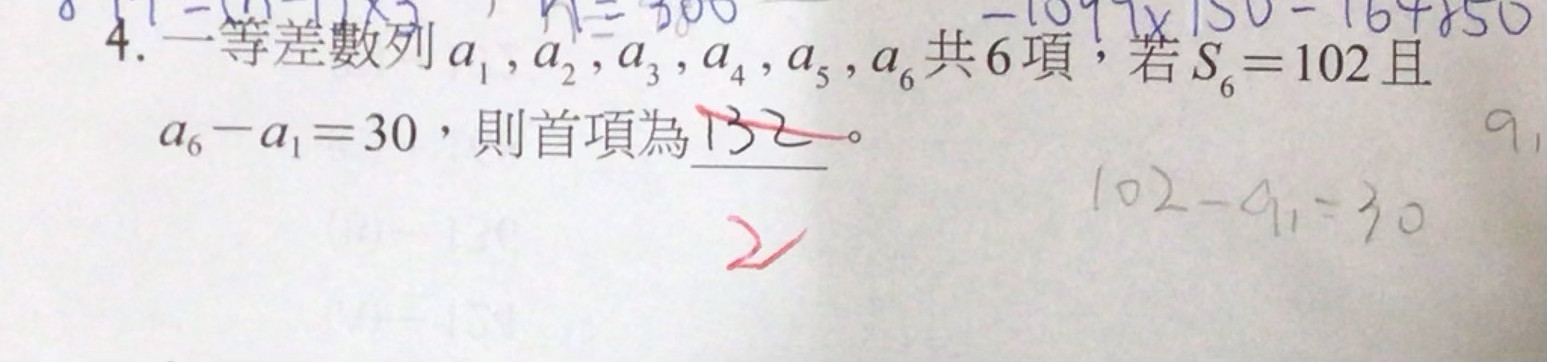 n=300
-1099×150=-164850
4. 一等差數列 a₁,a₂,a₃,a₄,a₅,a₆共6項,若S₆=102且
a₆-a₁=30,則首項為132。
a₁
102-a₁=30
2